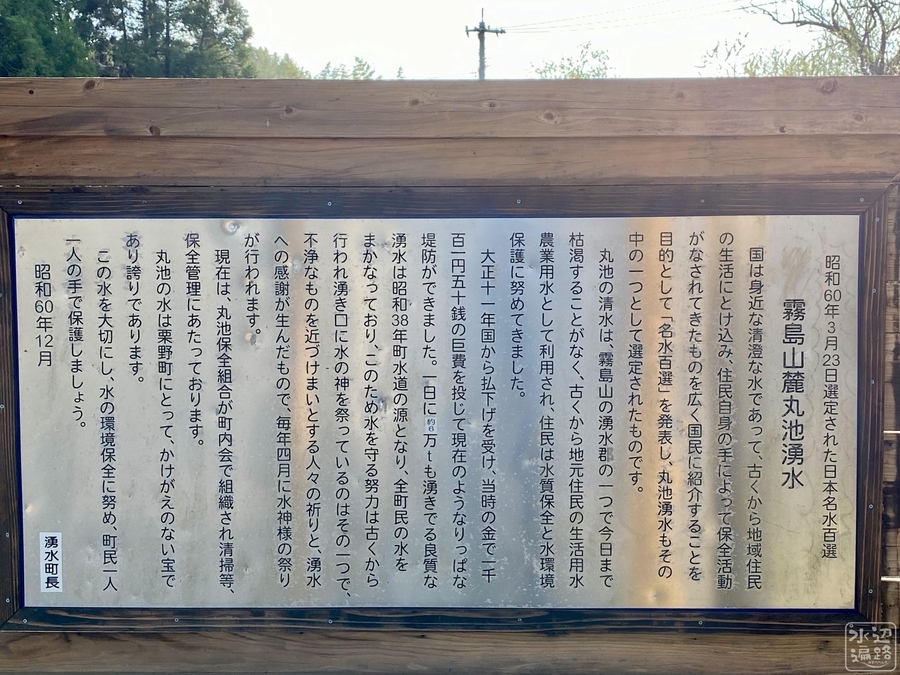 昭和60年3月23日選定された日本名水百選
霧島山麓丸池湧水
国は身近な清澄な水であって、古くから地域住民
の生活にとけ込み、住民自身の手によって保全活動
がなされてきたものを広く国民に紹介することを
目的として「名水百選」を発表し、丸池湧水もその
中の一つとして選定されたものです。
丸池の清水は、霧島山の湧水郡の一つで今日まで
枯渇することがなく、古くから地元住民の生活用水
農業用水として利用され、住民は水質保全と水環境
保護に努めてきました。
大正十一年国から払下げを受け、当時の金で一千
百一円五十銭の巨費を投じて現在のようなりっぱな
堤防ができました。一日に約6万tも湧きでる良質な
湧水は昭和38年町水道の源となり、全町民の水を
まかなっており、このため水を守る努力は古くから
行われ湧き口に水の神を祭っているのはその一つで、
不浄なものを近づけまいとする人々の祈りと、湧水
への感謝が生んだもので、毎年四月に水神様の祭り
が行われます。
現在は、丸池保全組合が町内会で組織され清掃等、
保全管理にあたっております。
丸池の水は栗野町にとって、かけがえのない宝で
あり誇りであります。
この水を大切にし、水の環境保全に努め、町民一人
一人の手で保護しましょう。
昭和60年12月
湧水町長
水辺遍路